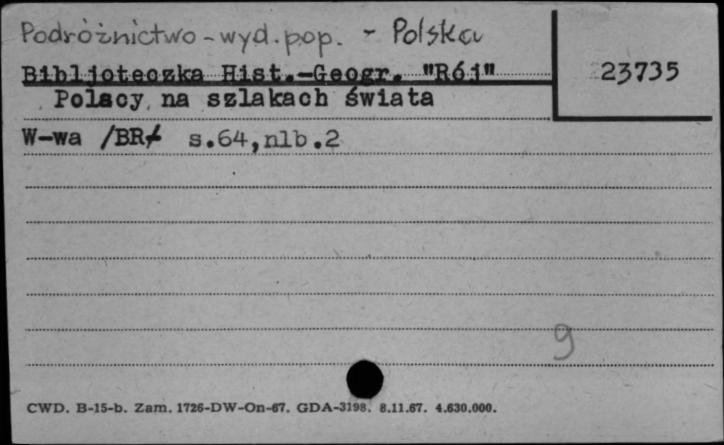 Podróżnictwo - wyd. pop. - Polska
Bibljoteczka Hist.-Geogr. "Rój"
23735
Polacy na szlakach świata
W-wa /BR/ s.64,nlb.2
9
CWD. B-15-b. Zam. 1726-DW-On-67. GDA-3198. 8.11.67. 4.630.000.